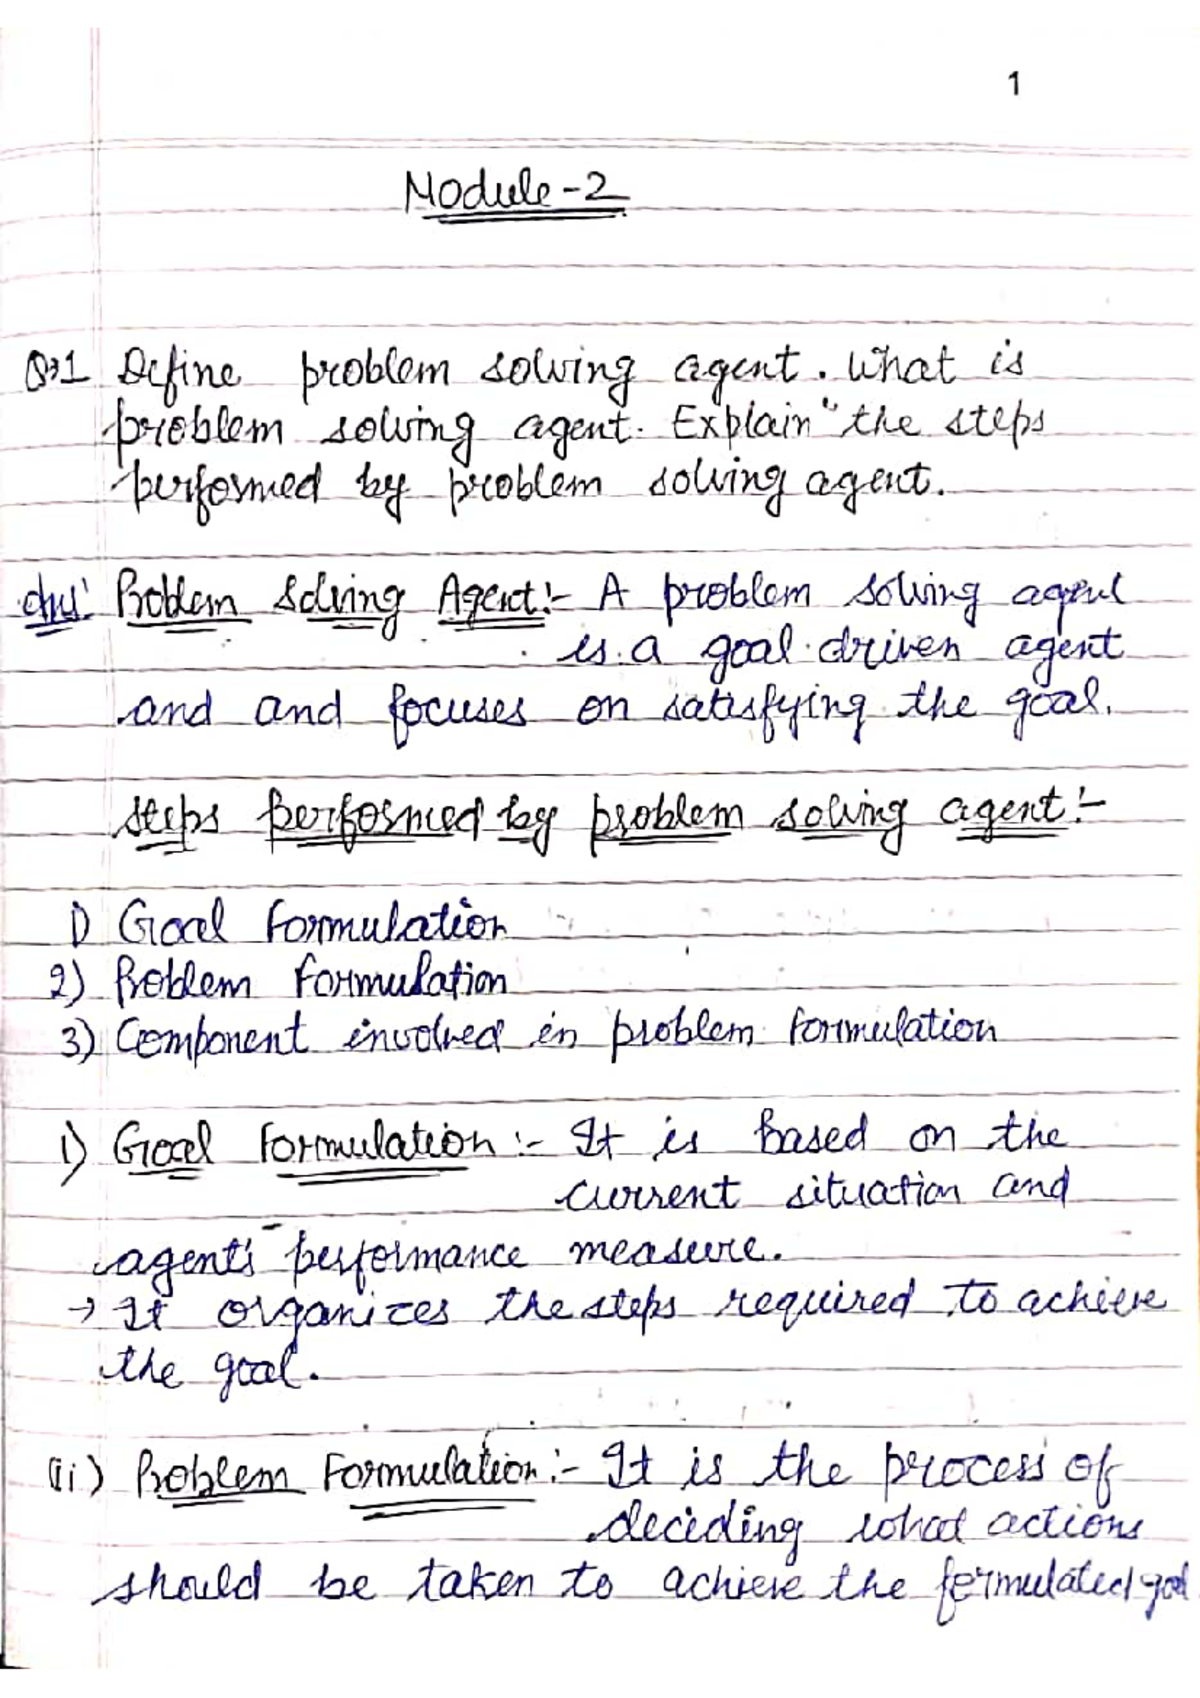 1
Module-2
Q1 Define problem solving agent. What is
problem solving agent. Explain the steps
performed by problem solving agent.
Ans: Problem Solving Agent:- A problem solving agent
is a goal driven agent
and and focuses on satisfying the goal.
steps performed by problem solving agent:-
1) Goal Formulation
2) Problem Formulation
3) Component involved in problem formulation
i) Goal Formulation:- It is based on the
current situation and
agent's performance measure.
→ It organizes the steps required to achieve
the goal.
(ii) Problem Formulation:- It is the process of
deciding what actions
should be taken to achieve the formulated goal